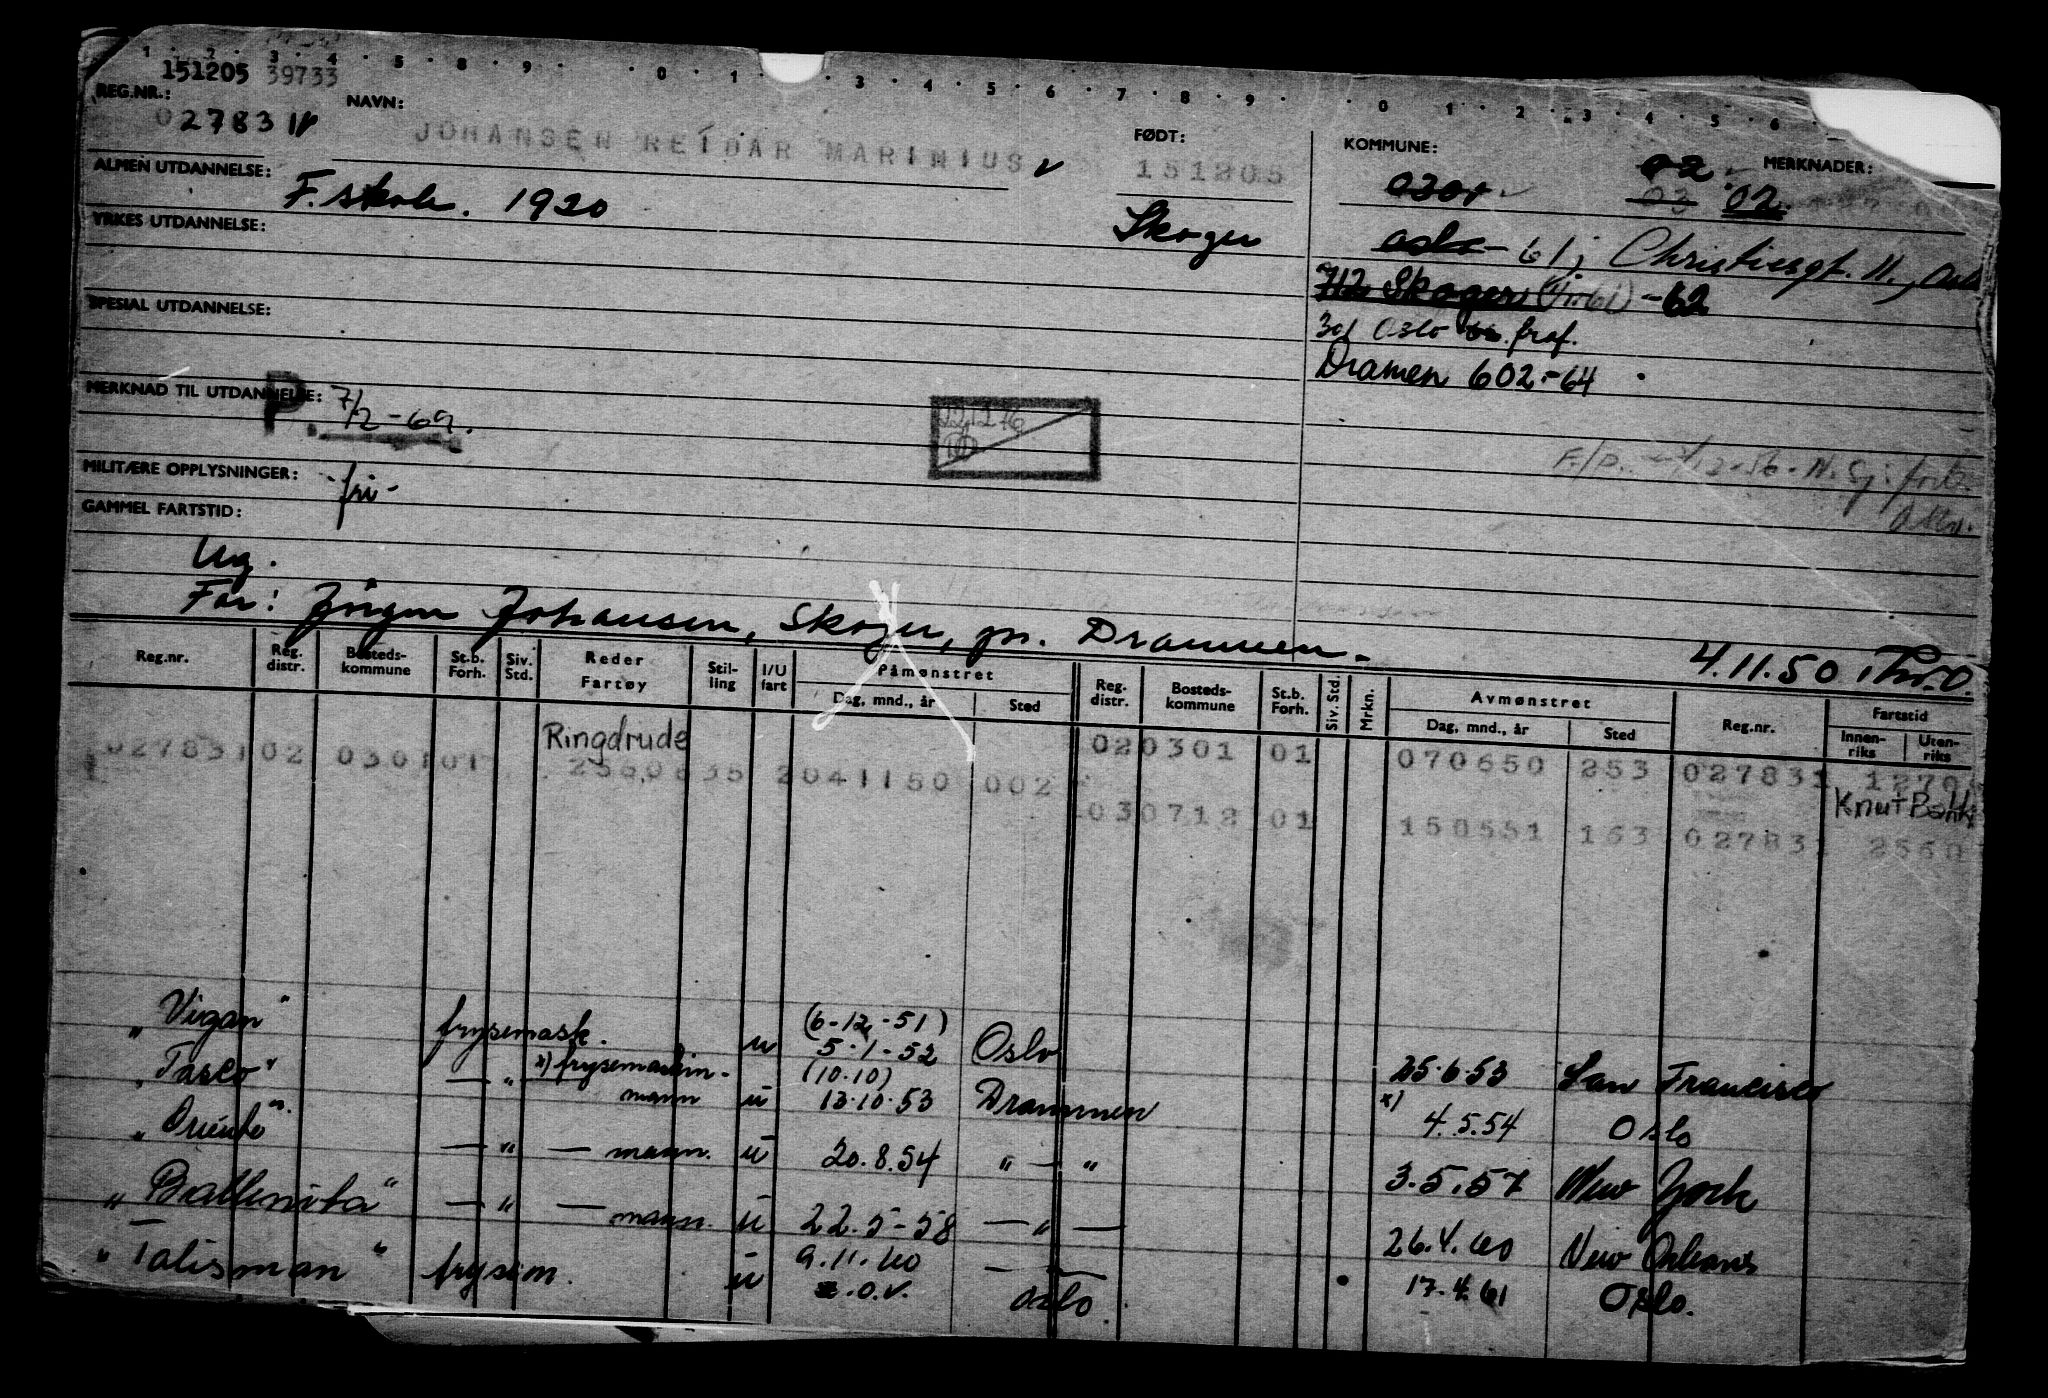 1 2 3 4 5 8 9 0 1 3 4 5 6 7 8 9 0 1 2 3 4 5 6
151205 39733
REG.NR.:
02783 11
NAVN:
JOHANSEN REIDAR MARINIUS
FØDT:
151205
Skoger
KOMMUNE:
MERKNADER:
0301
02
03 02.
Oslo - 61; Christiesgt. 11, Oslo
712 Skoger (før 61) - 62
301 Oslo fraf.
Dramen 602 - 64
ALMEN UTDANNELSE:
F. skole. 1920
YRKES UTDANNELSE:
SPESIAL UTDANNELSE:
MERKNAD TIL UTDANNELSE:
P. 7/2 - 69.
MILITÆRE OPPLYSNINGER:
- fri -
GAMMEL FARTSTID:
Ug.
Far: Jörgen Johansen, Skoger, pr. Drammen.
4.11.50
Reg.nr.
Reg. distr.
Bosteds-kommune
St.b. Forh.
Siv. Std.
Reder Fartøy
Stil-ling
I/U fart
Påmønstret
Dag, mnd., år
Sted
Reg. distr.
Bosteds-kommune
St.b. Forh.
Siv. Std.
Mrkn.
Avmønstret
Dag, mnd., år
Sted
Reg.nr.
Fartstid
Innen-riks
Uten-riks
Ringdrude
02783102 030101 2041150 002 020301 01 070650 253 027831
Knut Bakke
030712 01 150551 163 027831
"Vigan" frysemask. u (6-12-51) 5-1-52 Oslo 25.6.53 San Francisco
"Tasco" — " x) frysemaskin-mann u (10.10) 13.10.53 Drammen x) 4.5.54 Oslo
"Oriente" — " — mann. u 20.8.54 " — " 3.5.57 New York
"Ballenita" — " — mann. u 22.5-58 — " — 26.4.60 New Orleans
"Talisman" frysem. u 9.11.60 O.V. Oslo 17.4.61 Oslo.